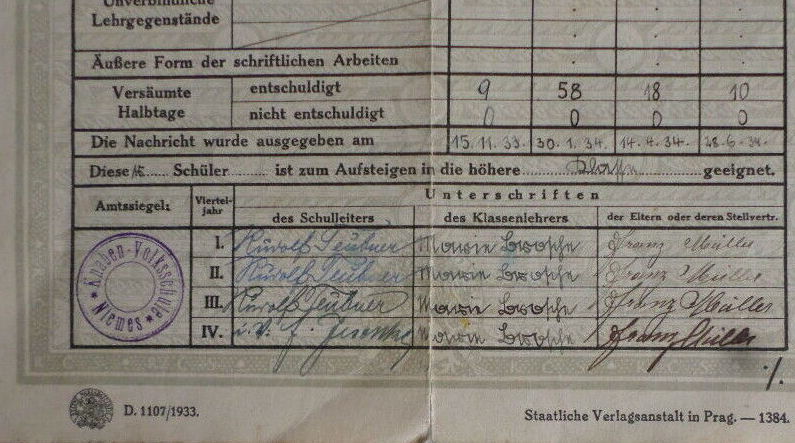 Unverbindliche
Lehrgegenstände
Äußere Form der schriftlichen Arbeiten
Versäumte Halbtage entschuldigt 9 58 18 10
nicht entschuldigt 0 0 0 0
Die Nachricht wurde ausgegeben am 15.11.33. 30.1.34. 14.4.34. 28.6.34.
Diese Schüler ist zum Aufsteigen in die höhere Klasse geeignet.
Amtssiegel: Viertel-jahr Unterschriften
des Schulleiters des Klassenlehrers der Eltern oder deren Stellvertr.
I. Rudolf Teubner Marie Brosche Franz Müller
II. Rudolf Teubner Marie Brosche Franz Müller
III. Rudolf Teubner Marie Brosche Franz Müller
IV. Marie Brosche Franz Müller
Knaben-Volksschule
* Niemes *
D. 1107/1933.
Staatliche Verlagsanstalt in Prag. — 1384.